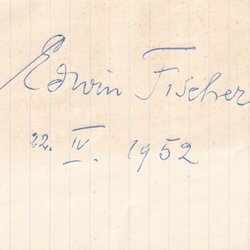 Edwin Fischer
22. IV. 1952